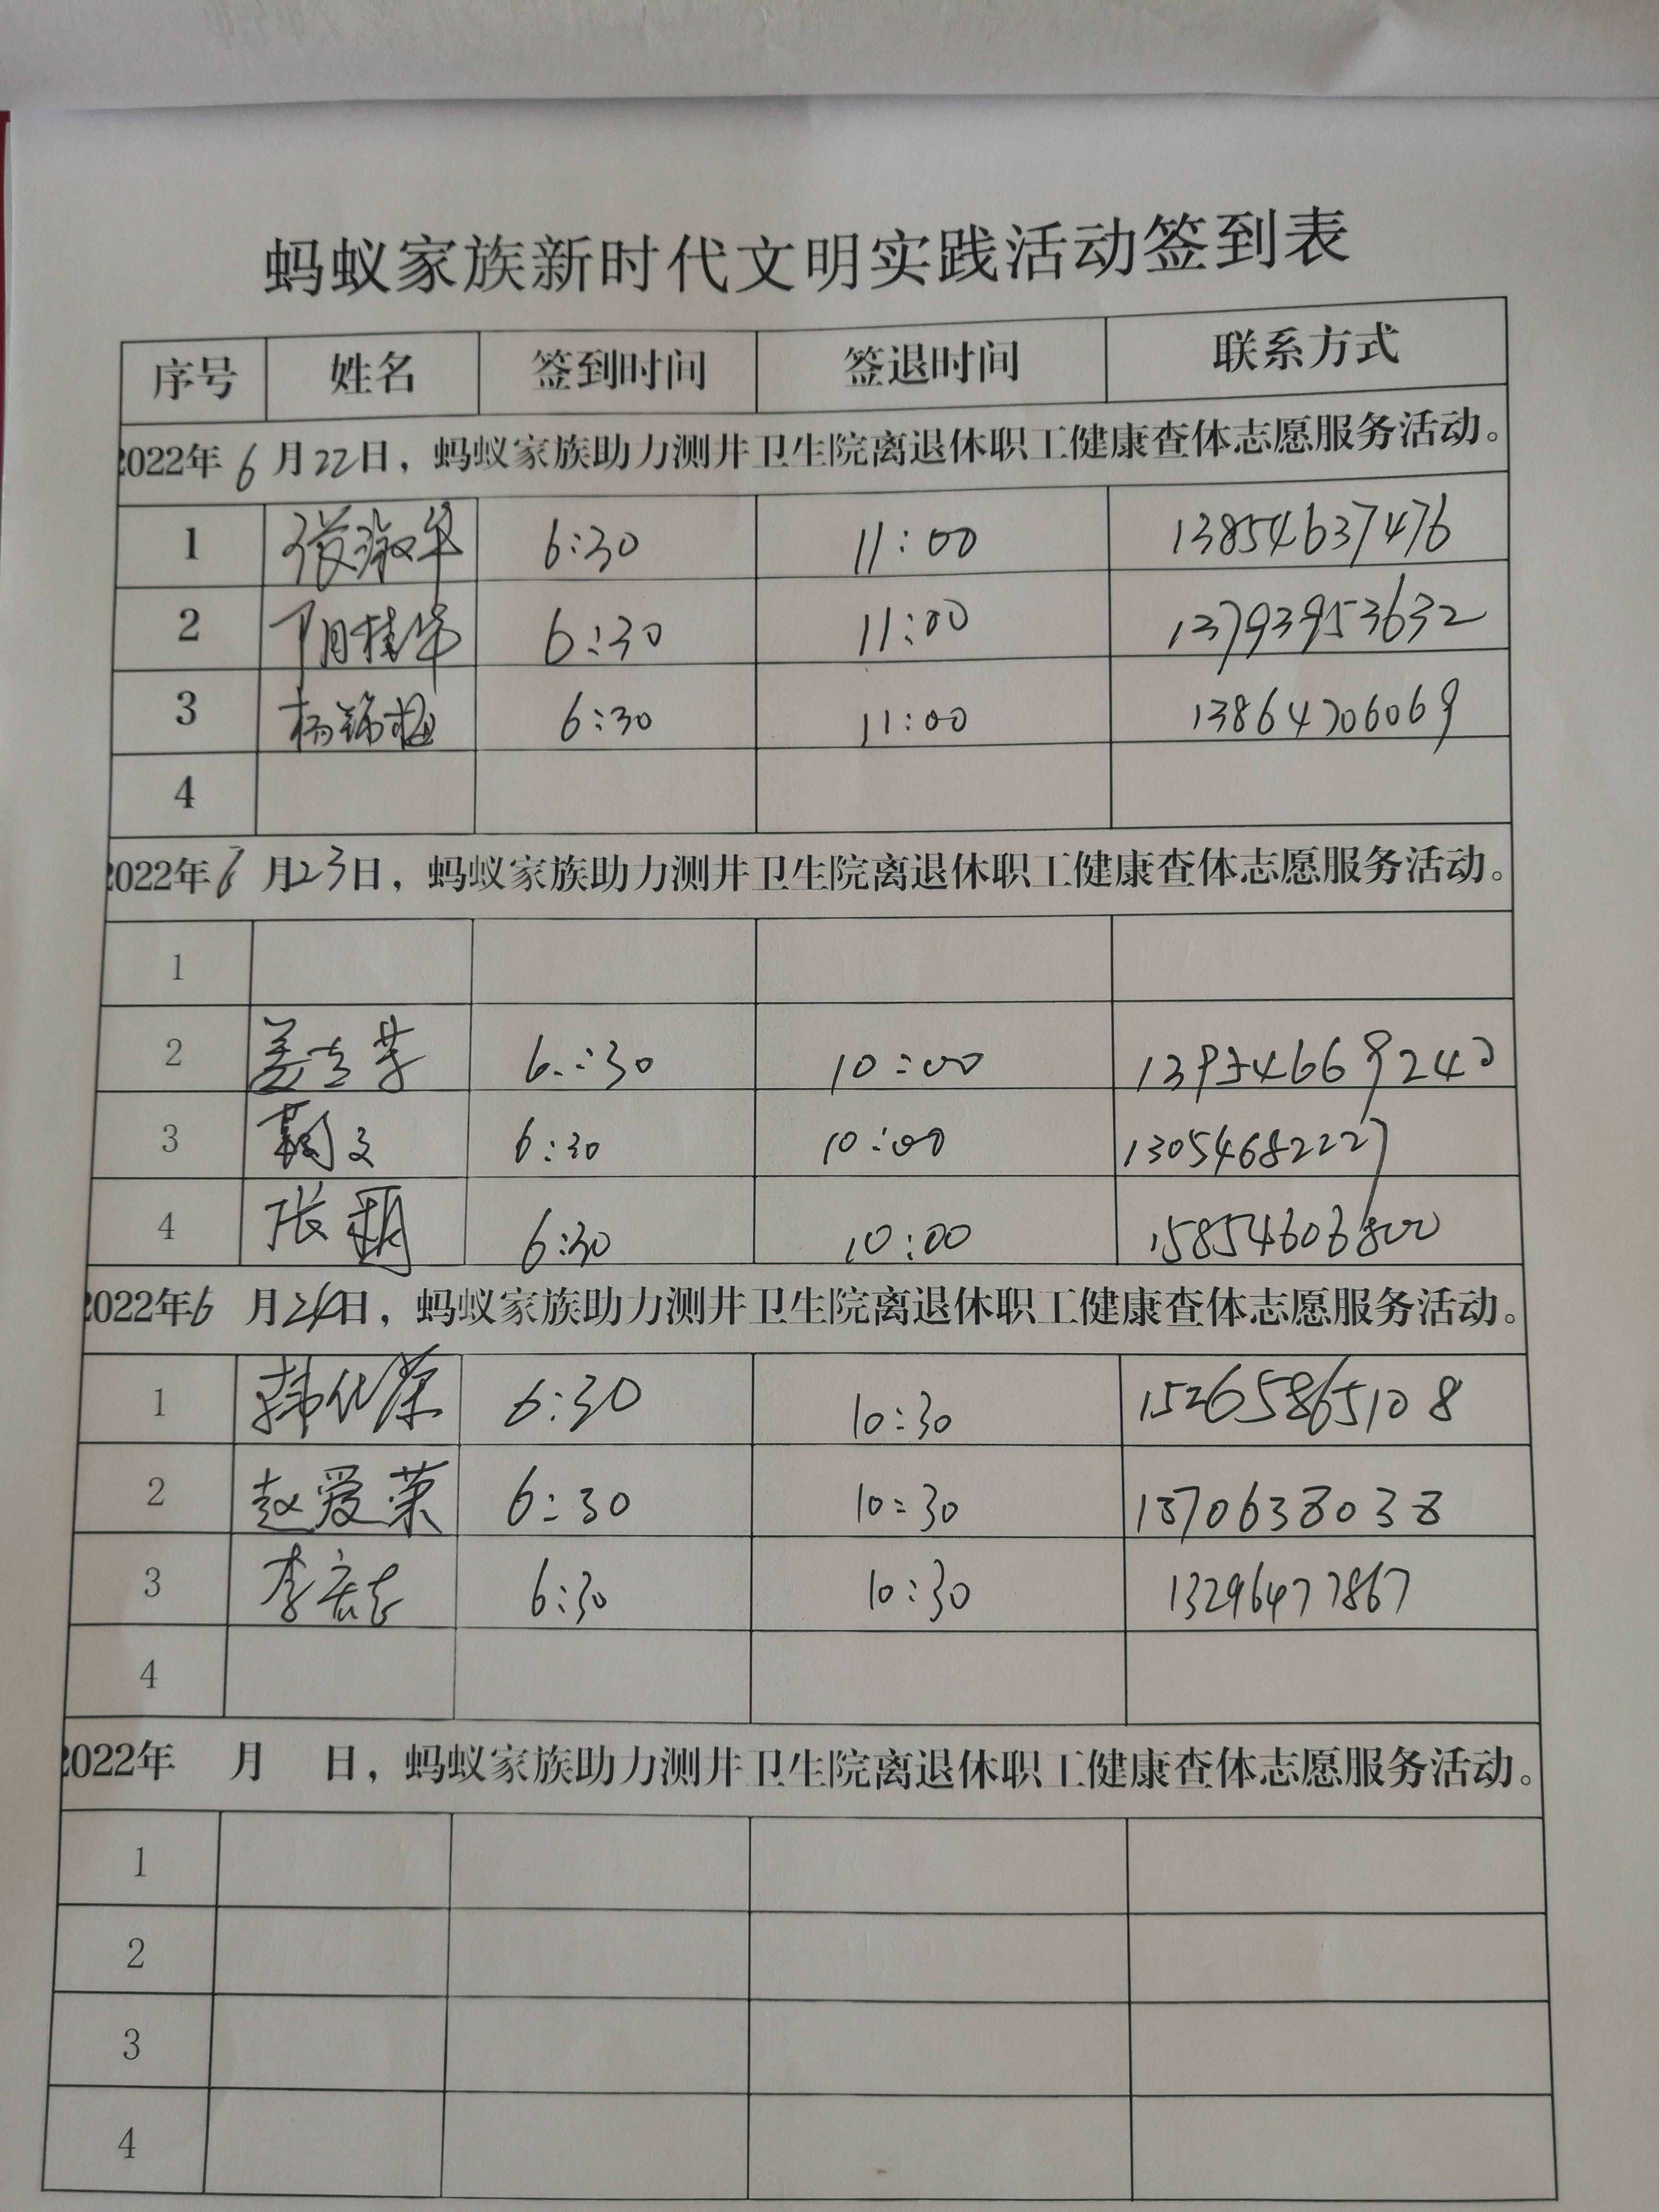 蚂蚁家族新时代文明实践活动签到表
序号 姓名 签到时间 签退时间 联系方式
2022年6月22日，蚂蚁家族助力测井卫生院离退休职工健康查体志愿服务活动。
1 张淑华 6:30 11:00 13854637476
2 桂华 6:30 11:00 13793953632
3 杨锦梅 6:30 11:00 13864706069
4
2022年6月23日，蚂蚁家族助力测井卫生院离退休职工健康查体志愿服务活动。
1
2 盖立芳 6:30 10:00
3 6:30 10:00 13054682227
4 张 6:30 10:00 15854606800
2022年6月24日，蚂蚁家族助力测井卫生院离退休职工健康查体志愿服务活动。
1 韩 6:30 10:30 15265865108
2 赵爱荣 6:30 10:30
3 李宏志 6:30 10:30 13296477867
4
2022年 月 日，蚂蚁家族助力测井卫生院离退休职工健康查体志愿服务活动。
1
2
3
4